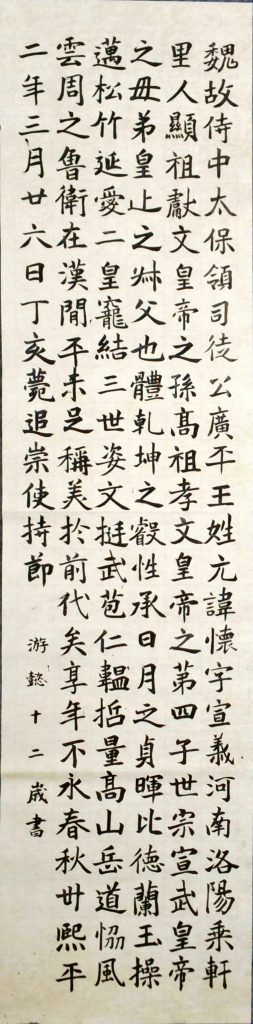 魏故侍中太保領司徒公廣平王姓元諱懷字宣義河南洛陽乘軒
里人顯祖獻文皇帝之孫高祖孝文皇帝之第四子世宗宣武皇帝
之毋弟皇上之叔父也體乹坤之叡性承日月之貞暉比德蘭玉操
邁松竹延愛二皇寵結三世姿文挺武苞仁韞哲量高山岳道恊風
雲周之魯衛在漢閒平未足稱美於前代矣享年不永春秋卅熙平
二年三月廿六日丁亥薨追崇使持節
游懿十二歲書